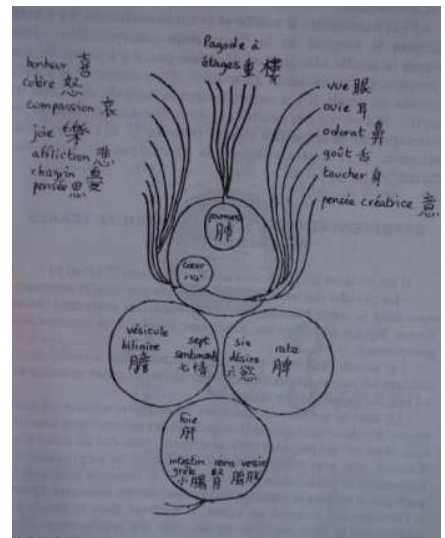 Pagode à
étages 重樓
bonheur 喜
colère 怒
compassion 哀
joie 樂
affliction 悲
chagrin 憂
pensée 思
vue 眼
ouïe 耳
odorat 鼻
goût 舌
toucher 身
pensée créatrice 意
poumons
肺
cœur
心
vésicule
biliaire
膽
sept
sentiments
七情
six
désirs
六慾
rate
脾
foie
肝
intestin reins vessie
grêle
小腸 腎